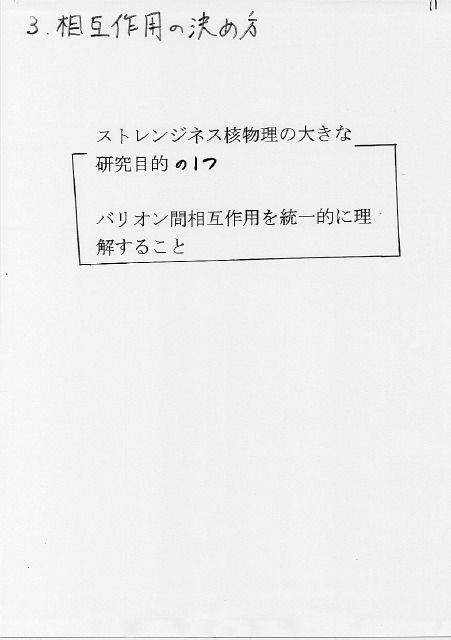 11
3. 相互作用の決め方
ストレンジネス核物理の大きな
研究目的の1つ
バリオン間相互作用を統一的に理
解すること